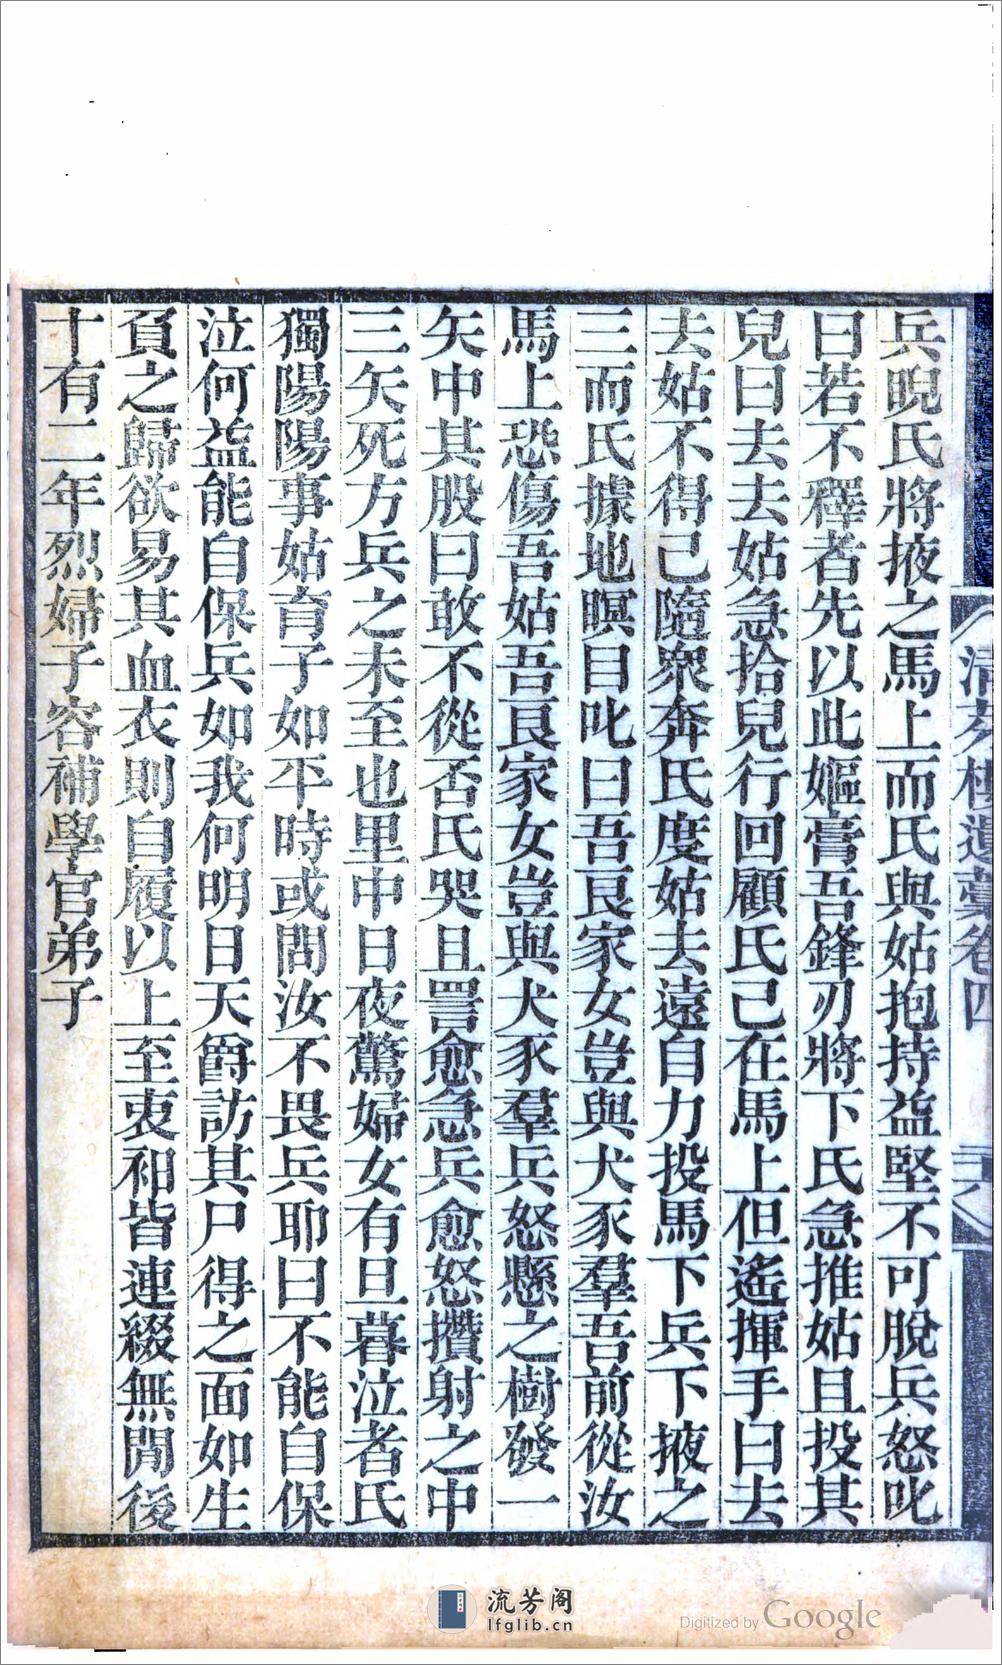 兵睨氏將掖之馬上而氏與姑抱持益堅不可脫兵怒叱
曰若不釋者先以此嫗膏吾鋒刃將下氏急推姑且投其
兒曰去去姑急拾兒行回顧氏已在馬上但遙揮手曰去
去姑不得已隨衆奔氏度姑去遠自力投馬下兵下掖之
三而氏據地瞑目叱曰吾良家女豈與犬豕羣吾前從汝
馬上恐傷吾姑吾良家女豈與犬豕羣兵怒懸之樹發一
矢中其股曰敢不從否氏哭且詈愈急兵愈怒攢射之中
三矢死方兵之未至也里中日夜驚婦女有旦暮泣者氏
獨陽陽事姑育子如平時或問汝不畏兵耶曰不能自保
泣何益能自保兵如我何明日天爵訪其尸得之面如生
負之歸欲易其血衣則自履以上至衷衵皆連綴無閒後
十有二年烈婦子容補學官弟子
清芬樓遺稾卷四
流芳阁
lfglib.cn
Digitized by Google